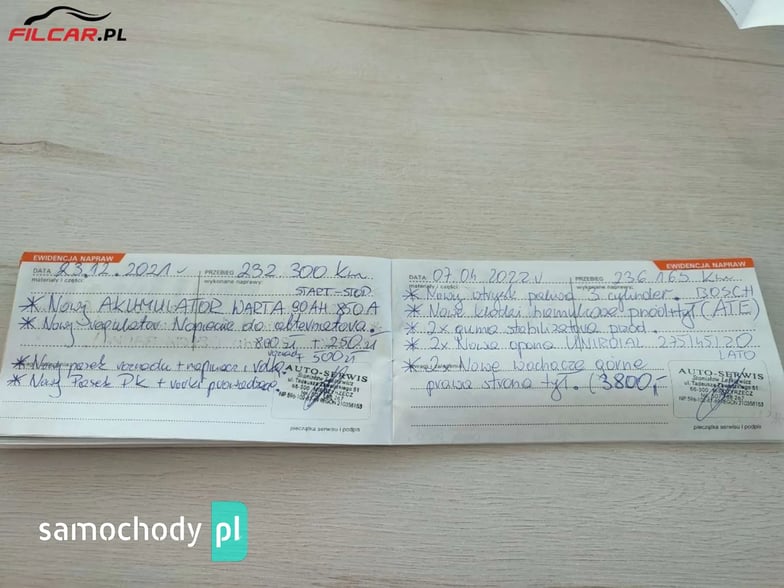 FILCAR.PL
EWIDENCJA NAPRAW
DATA 23.12.2021 r PRZEBIEG 232 300 Km
materiały i części wykonane naprawy:
START-STOP
* Nowy AKUMULATOR WARTA 90AH 850A
* Nowy regulator Napięcia do alternatora.
800 zł + 250 zł
500 zł
* Nowy pasek rozrządu + napinacz i
* Nowy Pasek PK + rolki
AUTO-SERWIS
pieczątka serwisu i podpis
EWIDENCJA NAPRAW
DATA 07.04 2022 r PRZEBIEG 236 165 Km
materiały i części wykonane naprawy:
* Nowy wtrysk paliwa 3 cylinder. BOSCH
* Nowe klocki hamulcowe przód + tył (ATE)
* 2x guma stabilizatora przód.
* 2x Nowa opona UNIROIAL 275/45/20
LATO
* 2x Nowe wachacze górne
prawa strona tył. (3800,-
AUTO-SERWIS
pieczątka serwisu i podpis
samochody pl